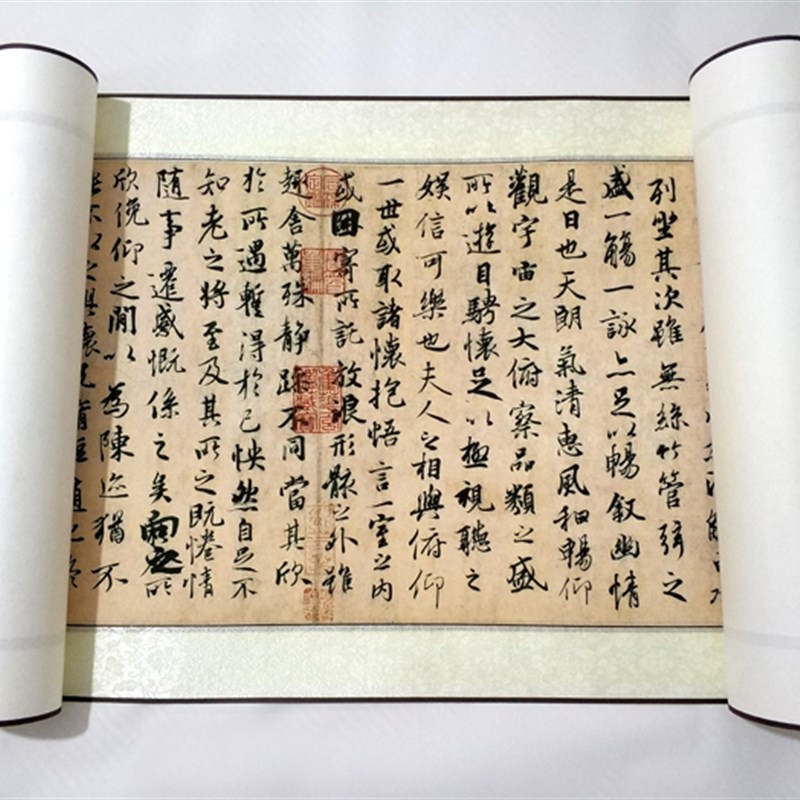 列坐其次雖無絲竹管弦之
盛一觴一詠亦足以暢敘幽情
是日也天朗氣清惠風和暢仰
觀宇宙之大俯察品類之盛
所以遊目騁懷足以極視聽之
娛信可樂也夫人之相與俯仰
一世或取諸懷抱悟言一室之內
或因寄所託放浪形骸之外雖
趣舍萬殊靜躁不同當其欣
於所遇暫得於己怏然自足不
知老之將至及其所之既惓情
隨事遷感慨係之矣向之所
欣俛仰之間以為陳迹猶不
不以之興懷